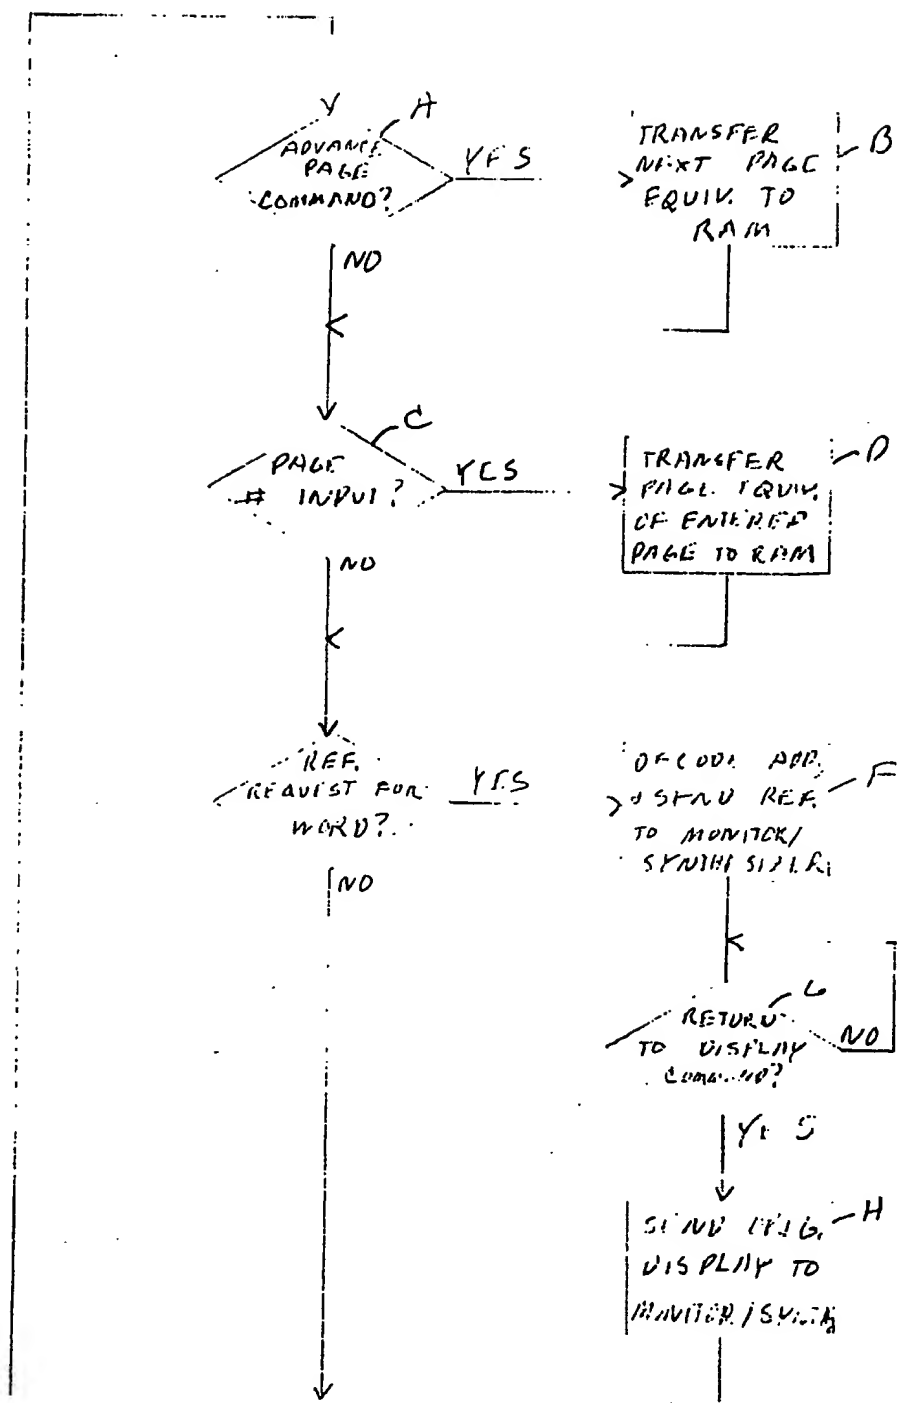 A
ADVANCE
PAGE
COMMAND?
YES
NO
TRANSFER
NEXT PAGE
EQUIV. TO
RAM
B
C
PAGE
# INPUT?
YES
NO
TRANSFER
PAGE EQUIV.
OF ENTERED
PAGE TO RAM
D
REF.
REQUEST FOR
WORD?
YES
NO
DECODE ADD.
& SEND REF.
TO MONITOR/
SYNTHESIZER
F
G
RETURN
TO DISPLAY
COMMAND?
NO
YES
SEND ORIG.
DISPLAY TO
MONITOR/SYNTH
H